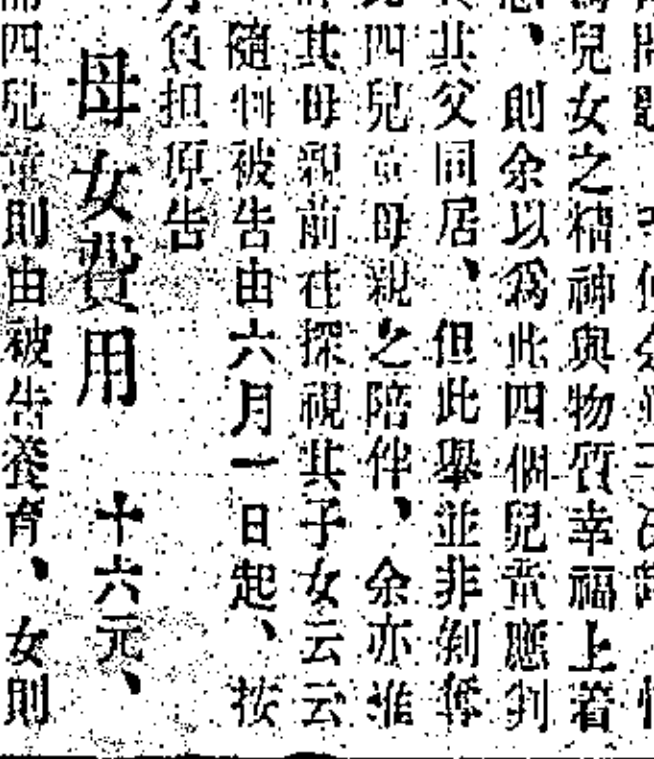 爲兒女之精神與物質幸福上着
則余以爲此四個兒童應判
其父同居、但此舉並非剝奪
此四兒童母親之陪伴、余亦准
許其母親前往探視其子女云云
隨判被告由六月一日起、按
月負担原告
母女費用 十六元、
而四兒童則由被告養育、女則